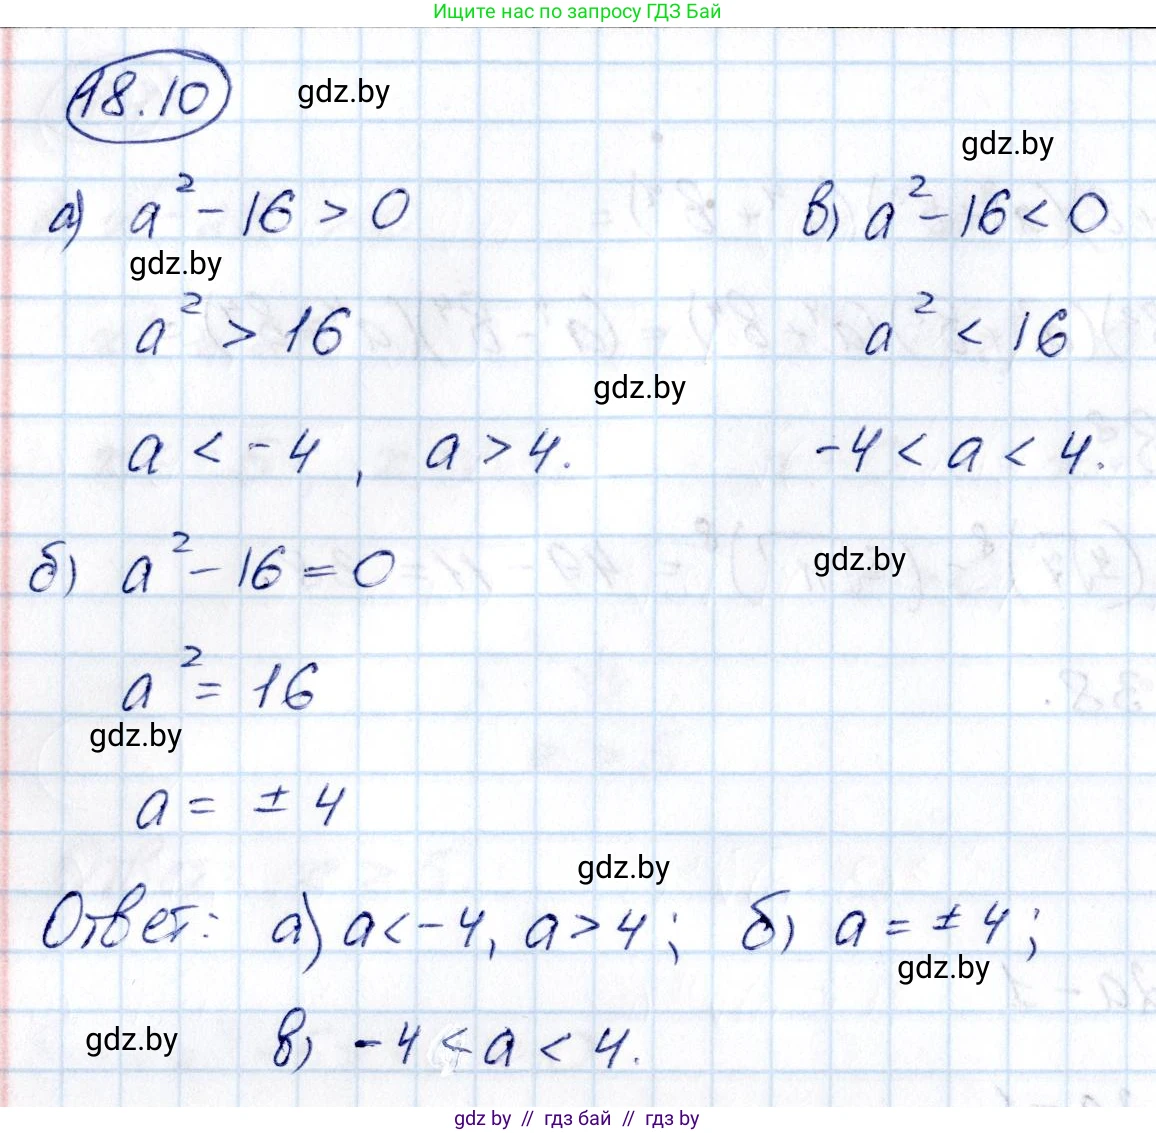 Ищите нас по запросу ГДЗ Бай
18.10
gdz.by
gdz.by
а) a² - 16 > 0
в) a² - 16 < 0
gdz.by
a² > 16
a² < 16
gdz.by
a < -4 , a > 4.
-4 < a < 4.
б) a² - 16 = 0
gdz.by
a² = 16
gdz.by
a = ± 4
gdz.by
Ответ: а) a < -4, a > 4; б) a = ± 4;
gdz.by
gdz.by
в) -4 < a < 4.
gdz by // гдз бай // гдз by